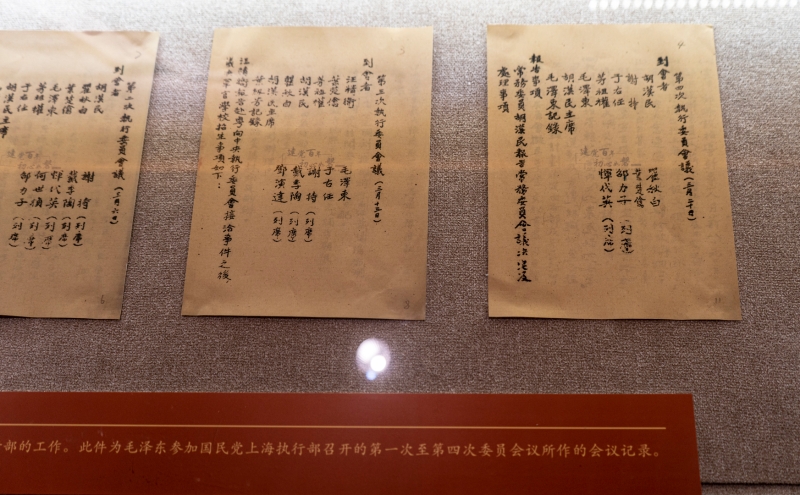 第二次執行委員會議(三月六日)
到會者
胡漢民
瞿秋白
葉楚傖
毛澤東
茅祖權
于右任
胡漢民主席
謝持
戴季陶(列席)
惲代英(列席)
何世楨(列席)
邵力子(列席)
第三次執行委員會議(三月十三日)
到會者
汪精衛
葉楚傖
茅祖權
胡漢民
瞿秋白
胡漢民主席
記錄
毛澤東
于右任
謝持(列席)
戴季陶(列席)
鄧演達(列席)
汪精衛報告赴粵向中央執行委員會接洽事件之後,
軍官學校招生事項如下:
第四次執行委員會議(三月二十日)
到會者
胡漢民
謝持
于右任
茅祖權
毛澤東
瞿秋白
葉楚傖
邵力子(列席)
惲代英(列席)
胡漢民主席
毛澤東記錄
報告事項
常務委員胡漢民報告常務委員會議決從及
處理事項
部的工作。此件为毛泽东参加国民党上海执行部召开的第一次至第四次委员会议所作的会议记录。